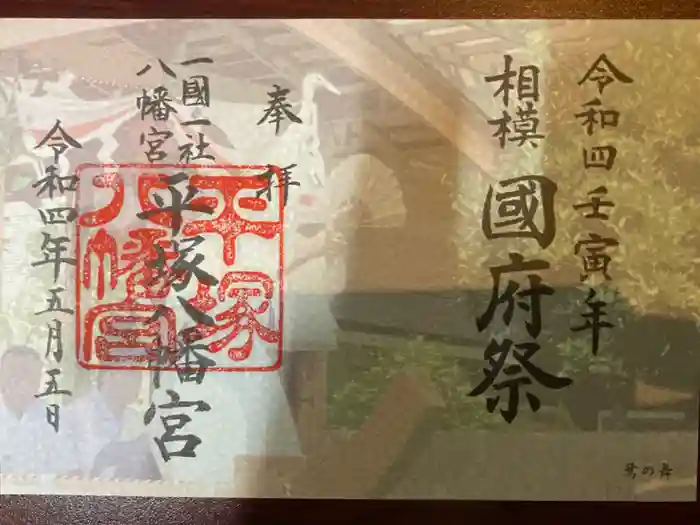 令和四壬寅年
相模國府祭
鷺の舞
奉拝
一國一社
八幡宮
平塚八幡宮
平塚
八幡宮
令和四年五月五日